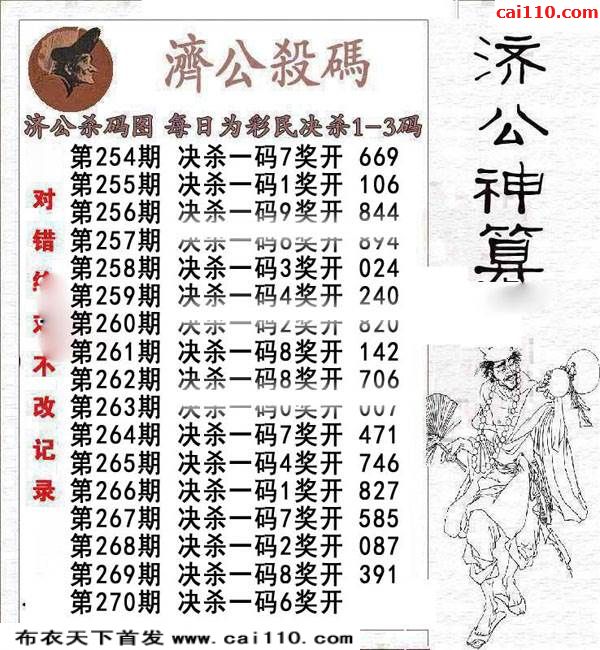 cai110.com
濟公殺碼
济公杀码图 每日为彩民决杀1-3码
第254期 决杀一码7奖开 669
第255期 决杀一码1奖开 106
第256期 决杀一码9奖开 844
第257期 决杀一码6奖开 894
第258期 决杀一码3奖开 024
第259期 决杀一码4奖开 240
第260期 决杀一码2奖开 820
第261期 决杀一码8奖开 142
第262期 决杀一码8奖开 706
第263期 决杀一码0奖开 007
第264期 决杀一码7奖开 471
第265期 决杀一码4奖开 746
第266期 决杀一码1奖开 827
第267期 决杀一码7奖开 585
第268期 决杀一码2奖开 087
第269期 决杀一码8奖开 391
第270期 决杀一码6奖开
对错 不改记录
济公神算
布衣天下首发 www.cai110.com